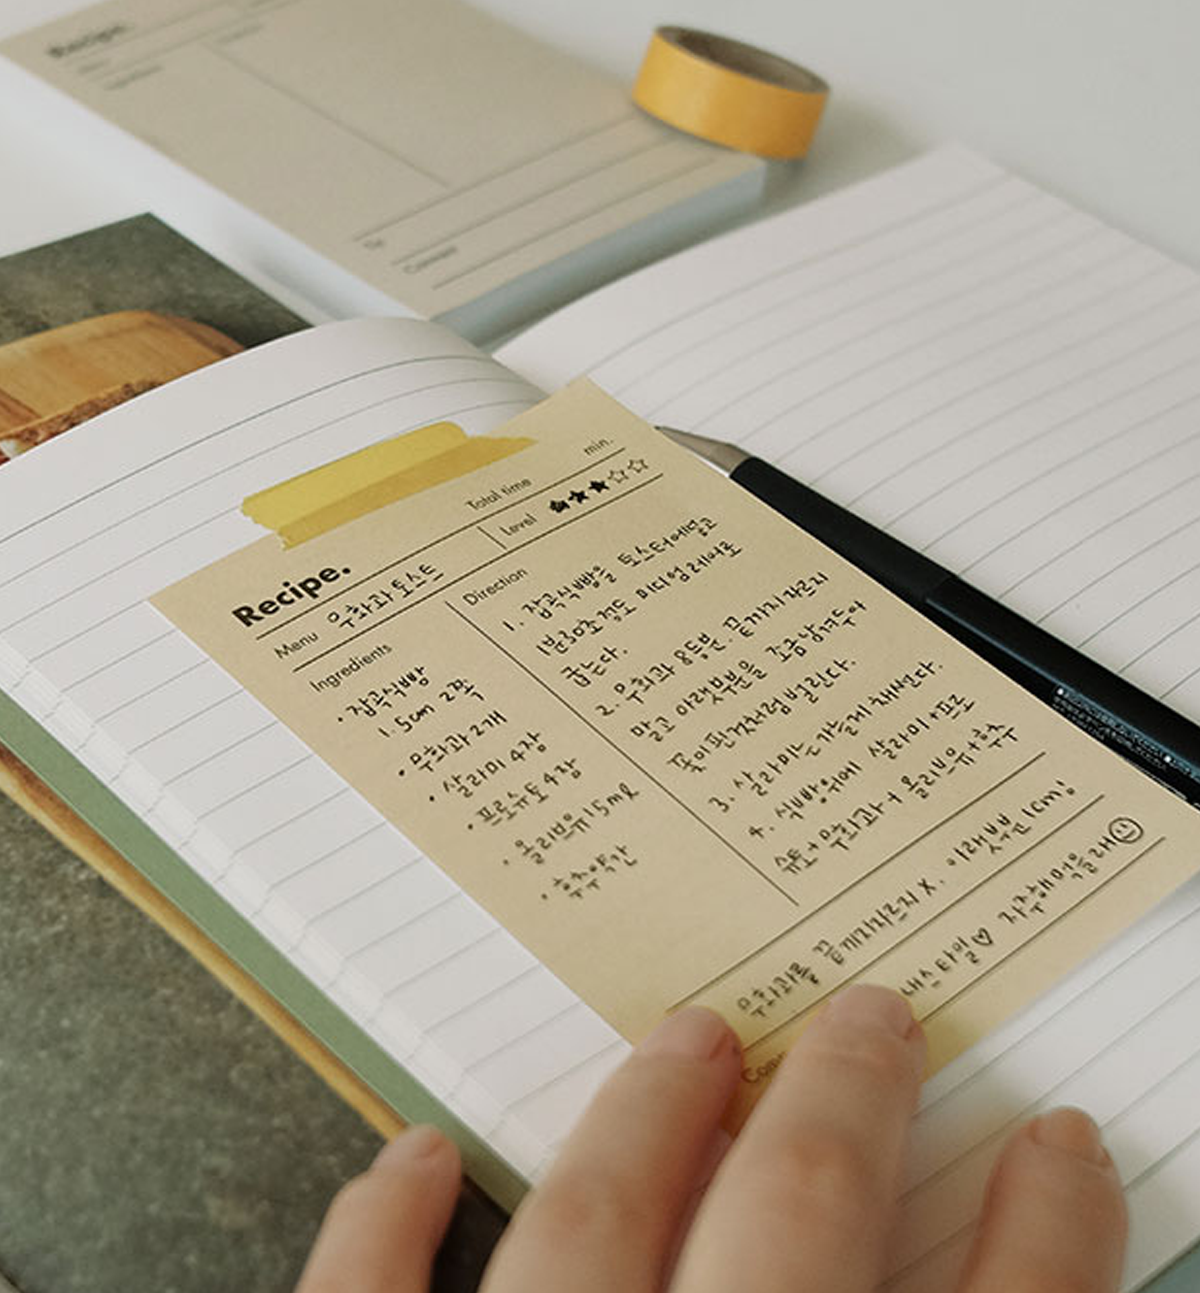 Recipe.
Total time min.
Menu 무화과토스트
Level
Ingredients
· 잡곡식빵
1.5cm 2쪽
· 무화과 2개
· 살라미 4장
· 프로슈토 4장
· 올리브유 15ml
· 후추약간
Direction
1. 잡곡식빵을 토스터에넣고
1분30초 정도 미디엄레어로
굽는다.
2. 무화과 8등분 끝까지자르지
말고 아랫부분을 조금남겨두어
꽃이핀것처럼 벌린다.
3. 살라미는 가늘게 채썬다.
4. 식빵위에 살라미+프로
슈토+무화과+올리브유+후추
무화과를 끝까지자르지 X. 아랫부분 1cm!
내스타일♡ 자주해먹을래
Recipe.